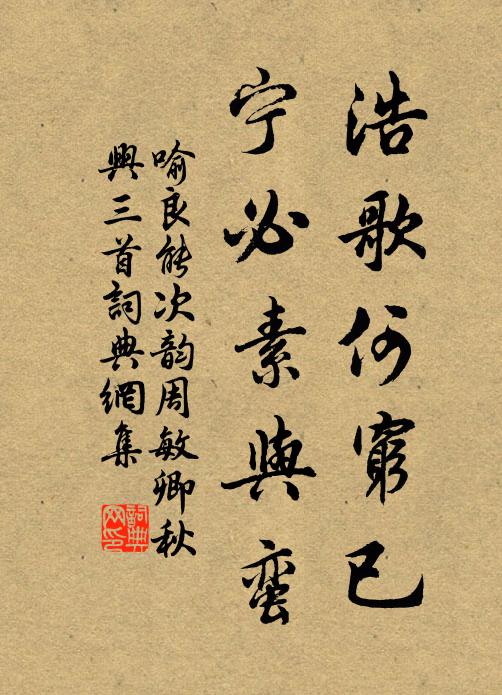 浩歌何窮已
宁必素與蛮
喻良能次韵周敏卿秋
興三首詞典網集
詞典
网印